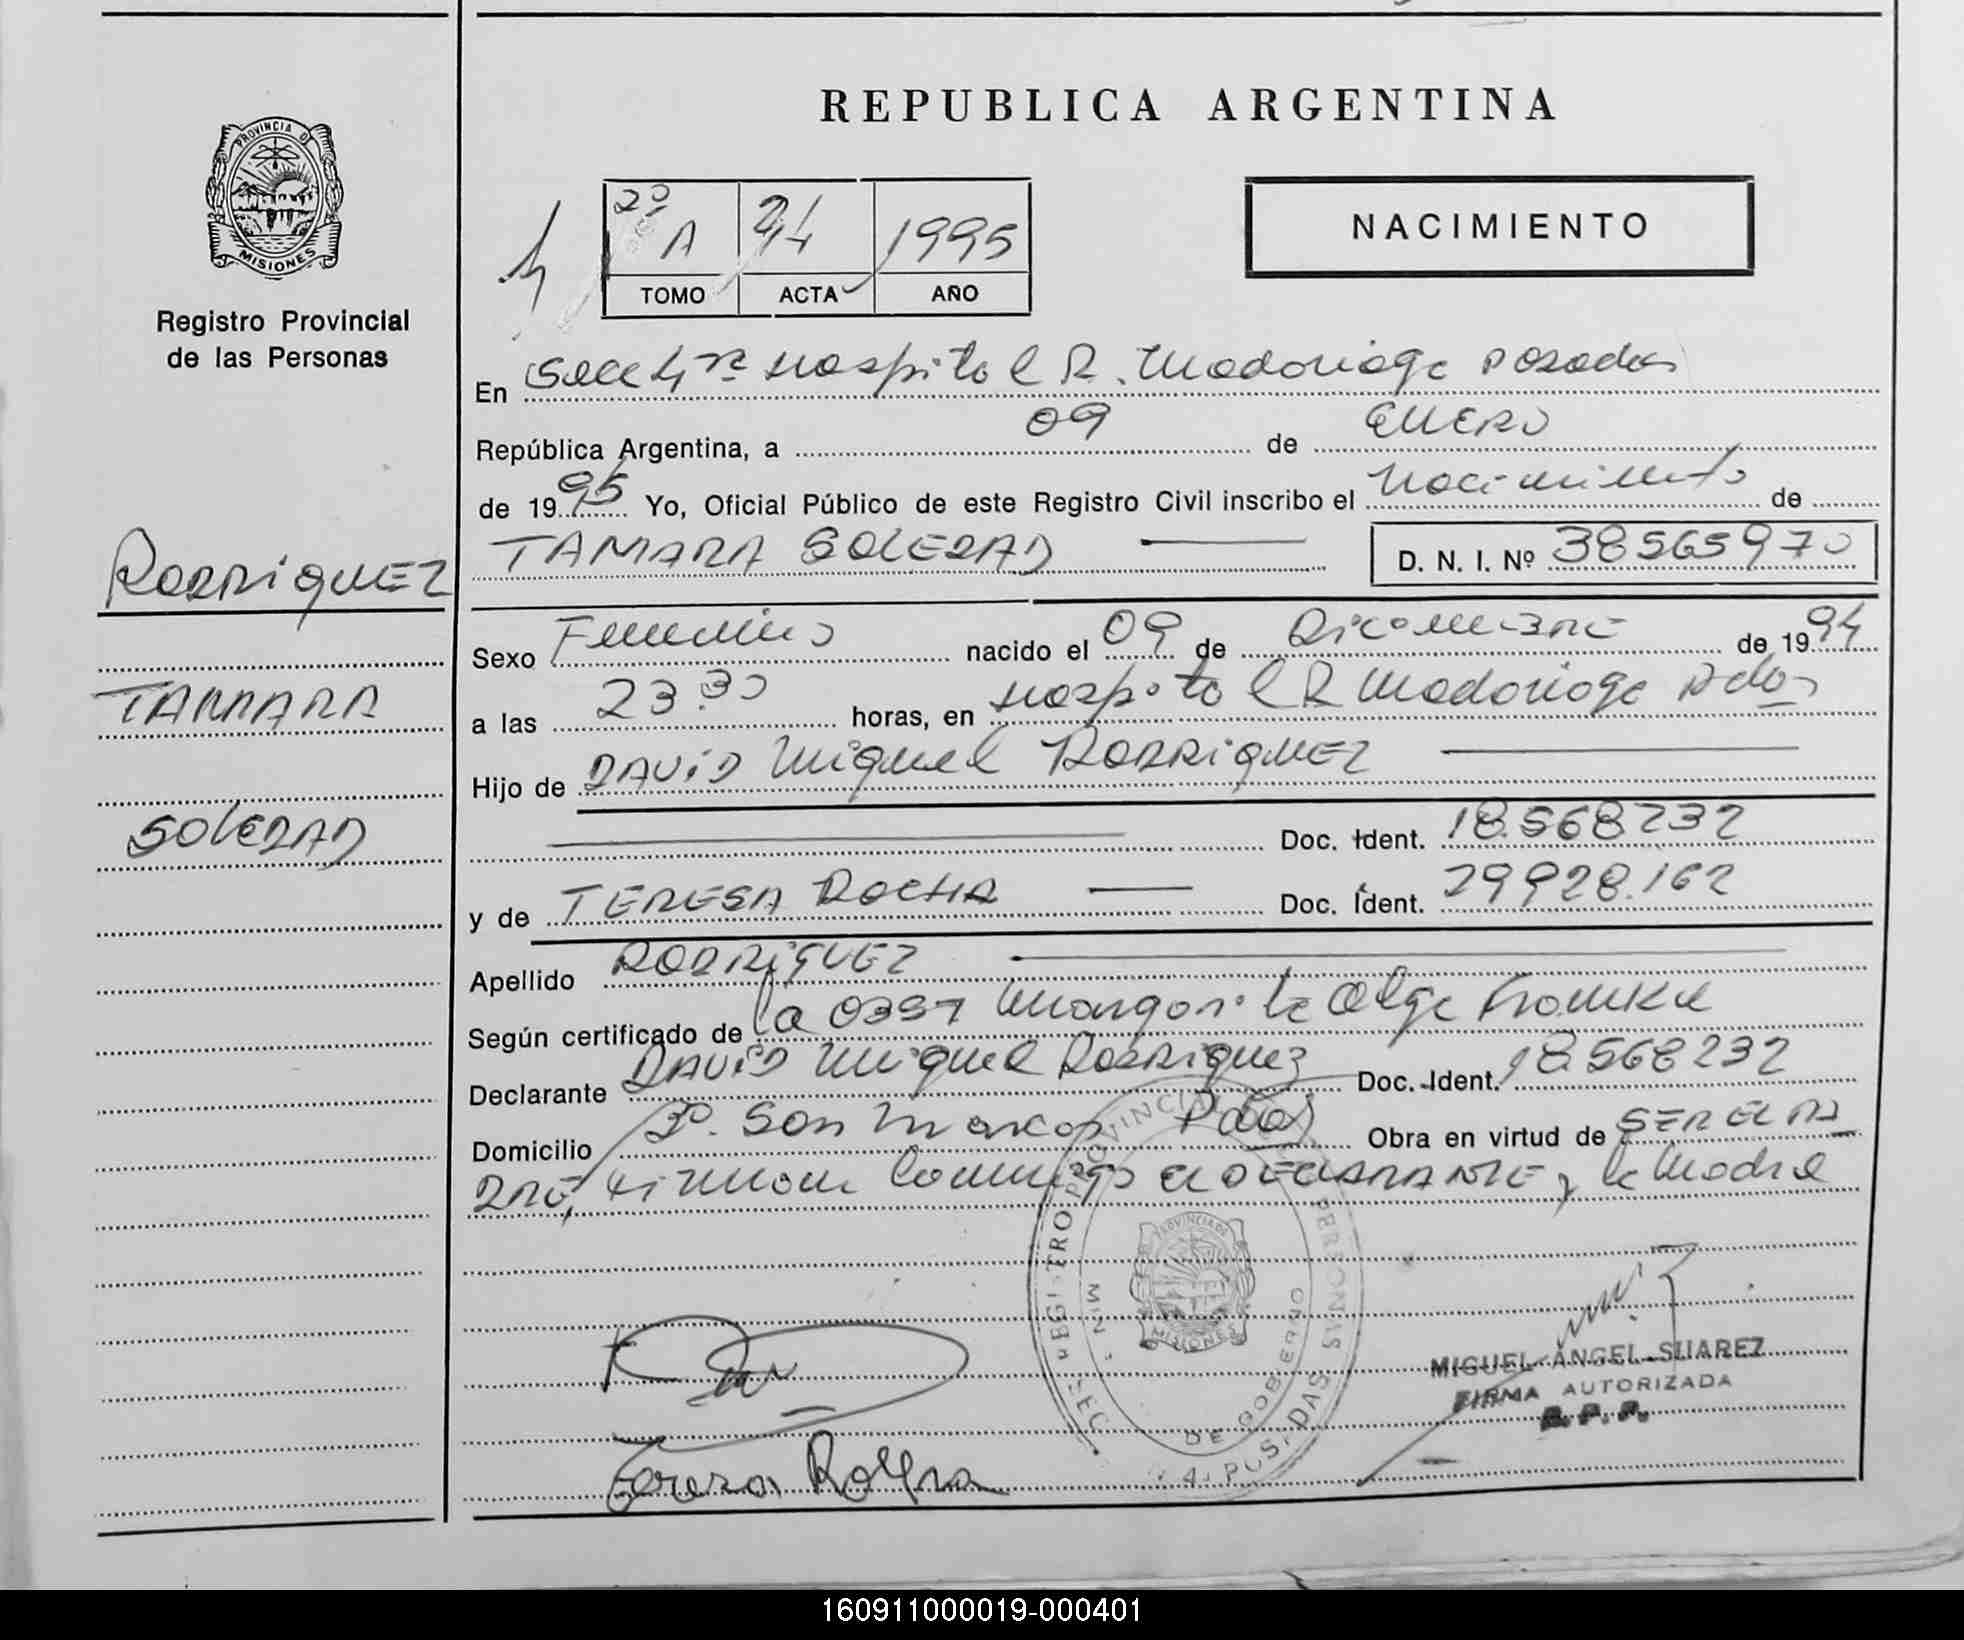 REPUBLICA ARGENTINA
PROVINCIA DE
MISIONES
Registro Provincial
de las Personas
NACIMIENTO
2º A
1995
TOMO ACTA AÑO
En Secc 4ra Hospital R. Madariaga Posadas
República Argentina, a 09 de ENERO
de 1995 Yo, Oficial Público de este Registro Civil inscribo el Nacimiento de
TAMARA SOLEDAD D. N. I. Nº 38565970
RODRIGUEZ
TAMARA
SOLEDAD
Sexo Femenino nacido el 09 de DICIEMBRE de 1994
a las 23.30 horas, en Hospital R Madariaga Pdas
Hijo de DAVID Miguel RODRIGUEZ
Doc. Ident. 18.568232
y de TERESA ROCHA Doc. Ident. 29928.162
Apellido RODRIGUEZ
Según certificado de la Margarita Olga
Declarante DAVID Miguel Rodriguez Doc. Ident. 18.568232
Domicilio Bº. San Marcos Pdas Obra en virtud de SER EL PA
DRE, Firman Conmigo el DECLARANTE y la Madre
REGISTRO PROVINCIAL PERSONAS
MIN DE GOBIERNO
PROVINCIA DE
MISIONES
SEC. 4ª POSADAS
MIGUEL ANGEL SUAREZ
FIRMA AUTORIZADA
R.P.P.
Tereza
160911000019-000401